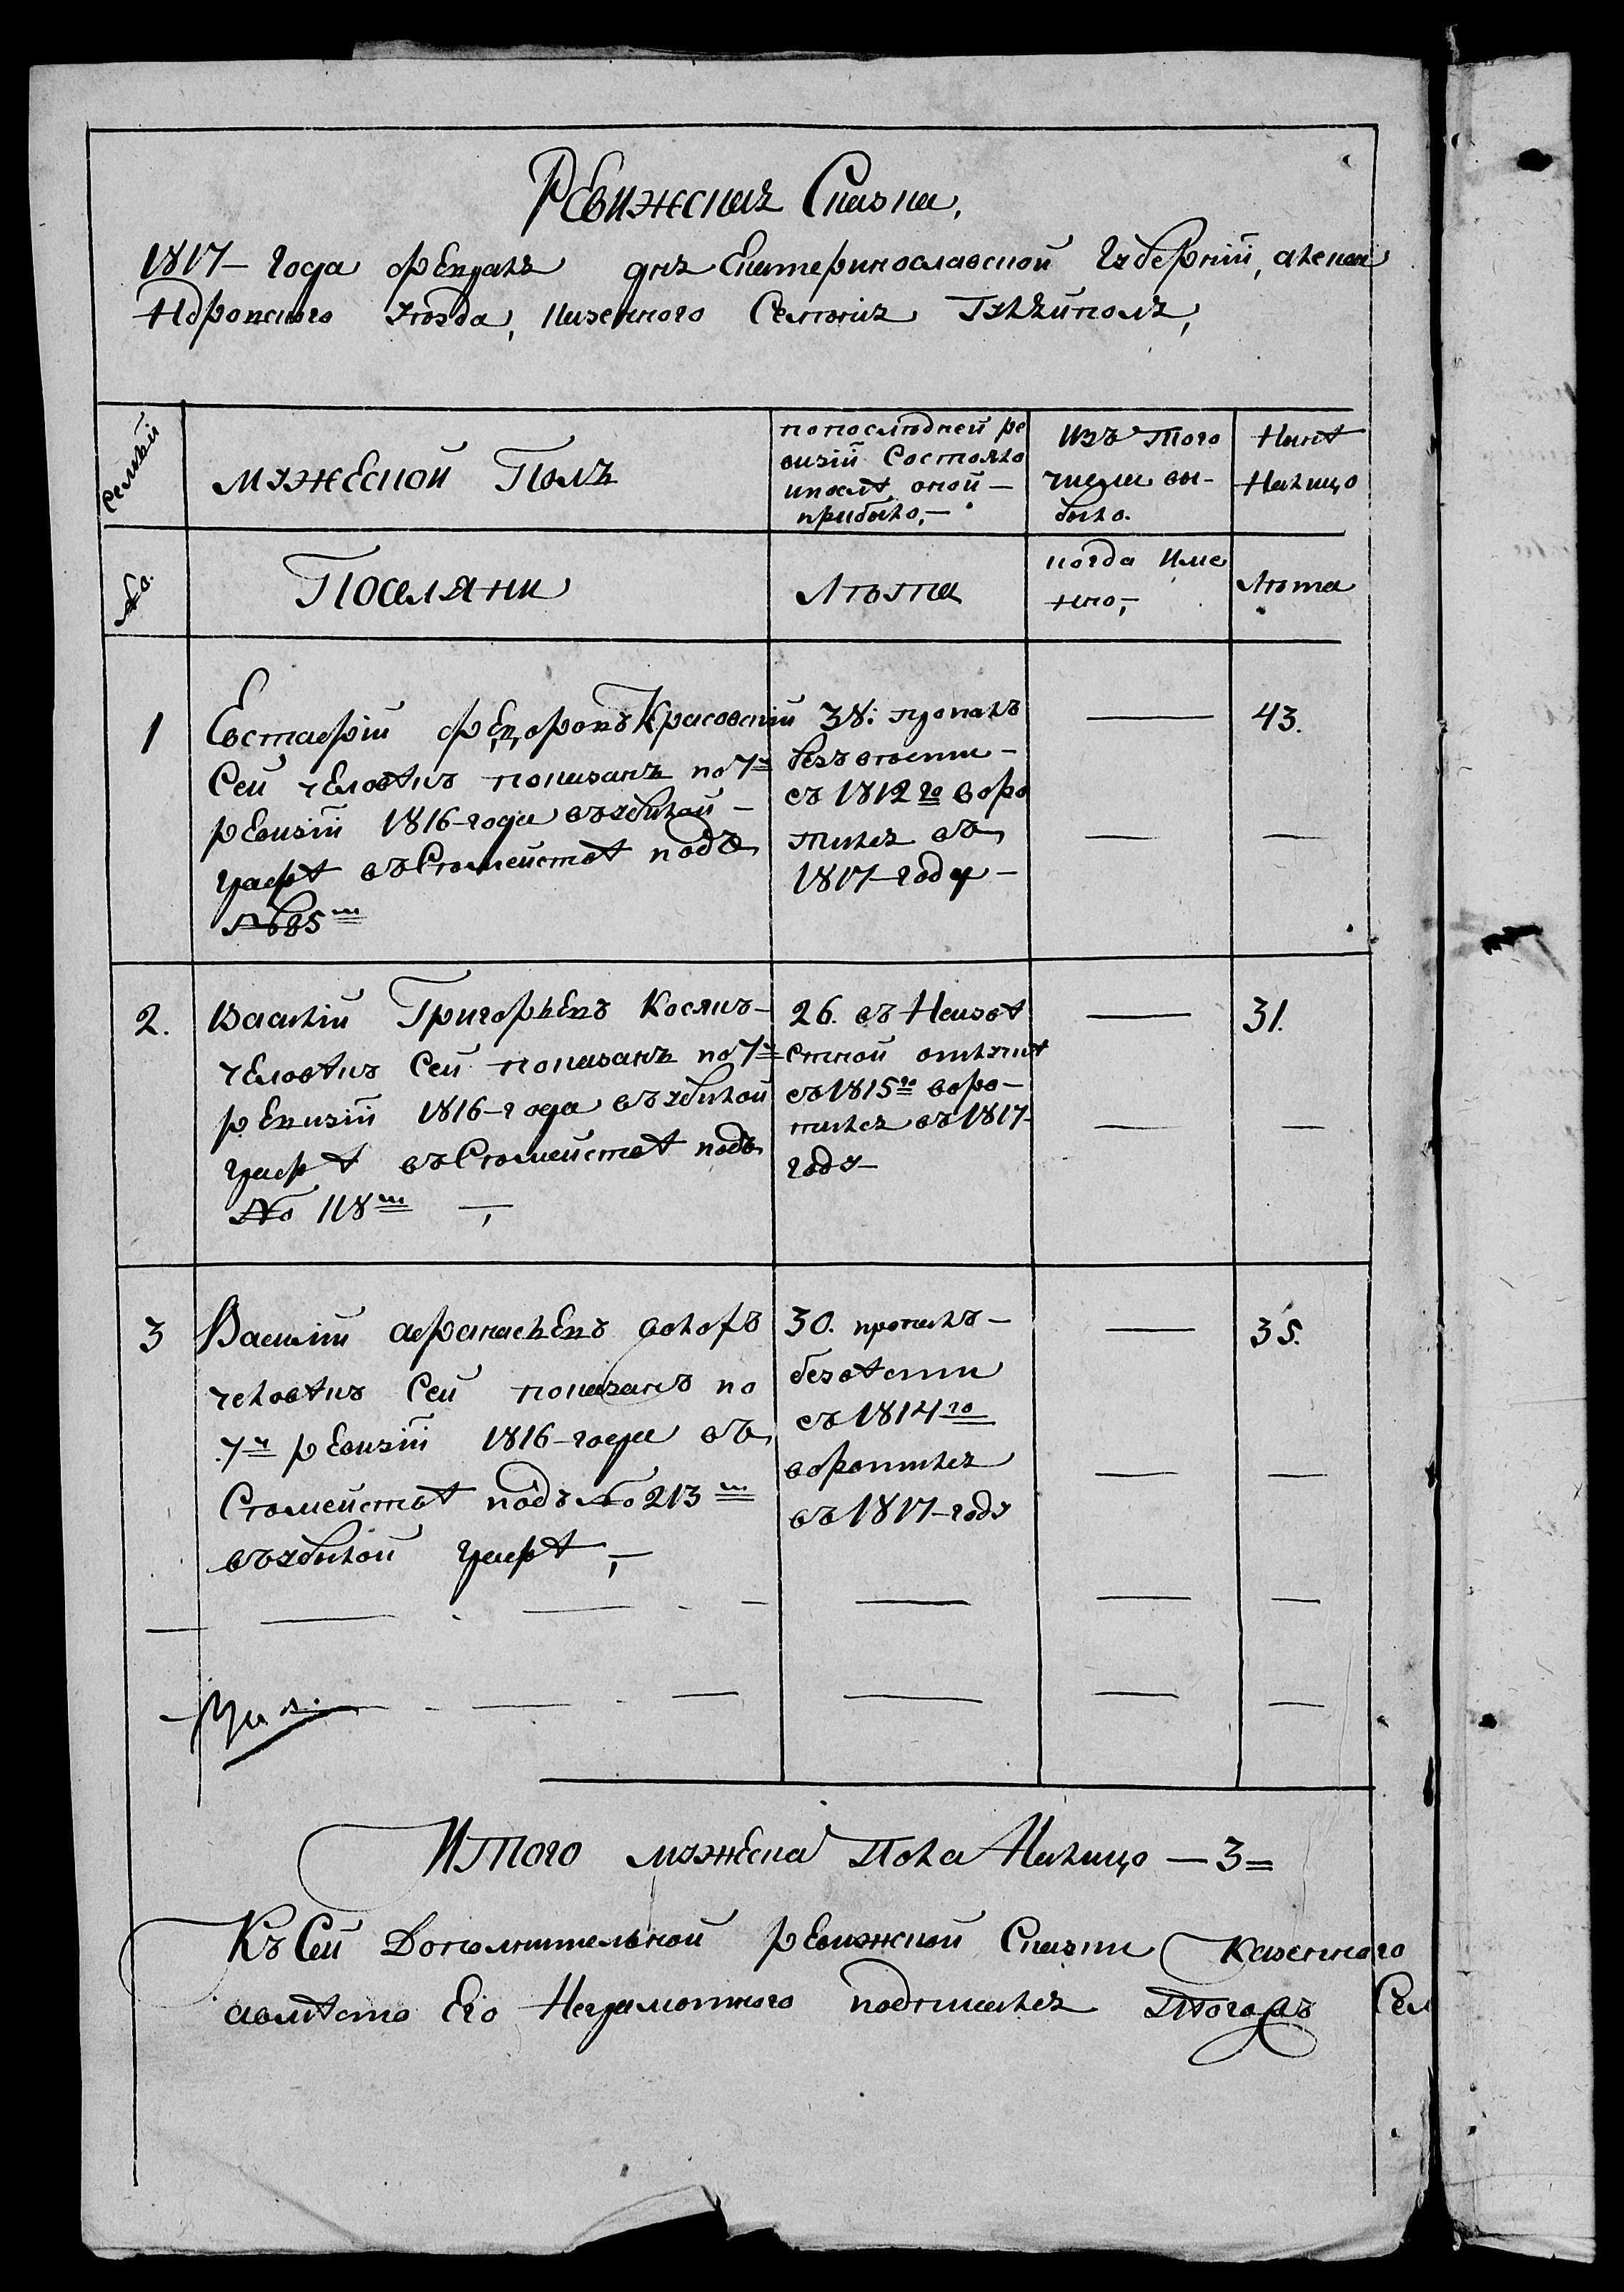 Ревижская Сказка,
1817– года февраля дня Екатеринославской Губернии, алексан
дровского уезда, казенного Селения Гуляйполя,
семьи
мужеской Полъ
по последней ре
визіи Состояло
и после оной –
прибыло, –
изъ того
числа вы–
было.
Ныне
На лицо
№.
Поселяни
Лѣта
когда Име
нно, –
Лѣта
1
Евстафій Федоровъ Красовскій
Сей человѣкъ показанъ по 7й
ревизіи 1816–года въ убылой –
графѣ въ Сѣмействѣ подъ
№ 85м
38. пропалъ
безъ вѣсти –
съ 1812го воро
тился въ
1817–году –
43.
2.
Василій Григорьевъ
человѣкъ Сей показанъ по 7й
ревизіи 1816–года въ убылой
графѣ въ Сѣмействѣ подъ
№ 118м –,
26. въ Неизвѣ
стной отлучкѣ
съ 1815го воро –
тился въ 1817–
году –
31.
3
Василій афанасьевъ
человѣкъ Сей показанъ по
7й ревизіи 1816–года въ
Сѣмействѣ подъ № 213м
въ убылой графѣ, –
30. пропалъ –
безвѣсти
съ 1814го
воротился
въ 1817–году
35.
Итого мужеска Пола На лицо – 3 =
Къ Сей Дополнительной ревижской Сказки казенного
авмѣсто Его Неграмотного подписался Сел